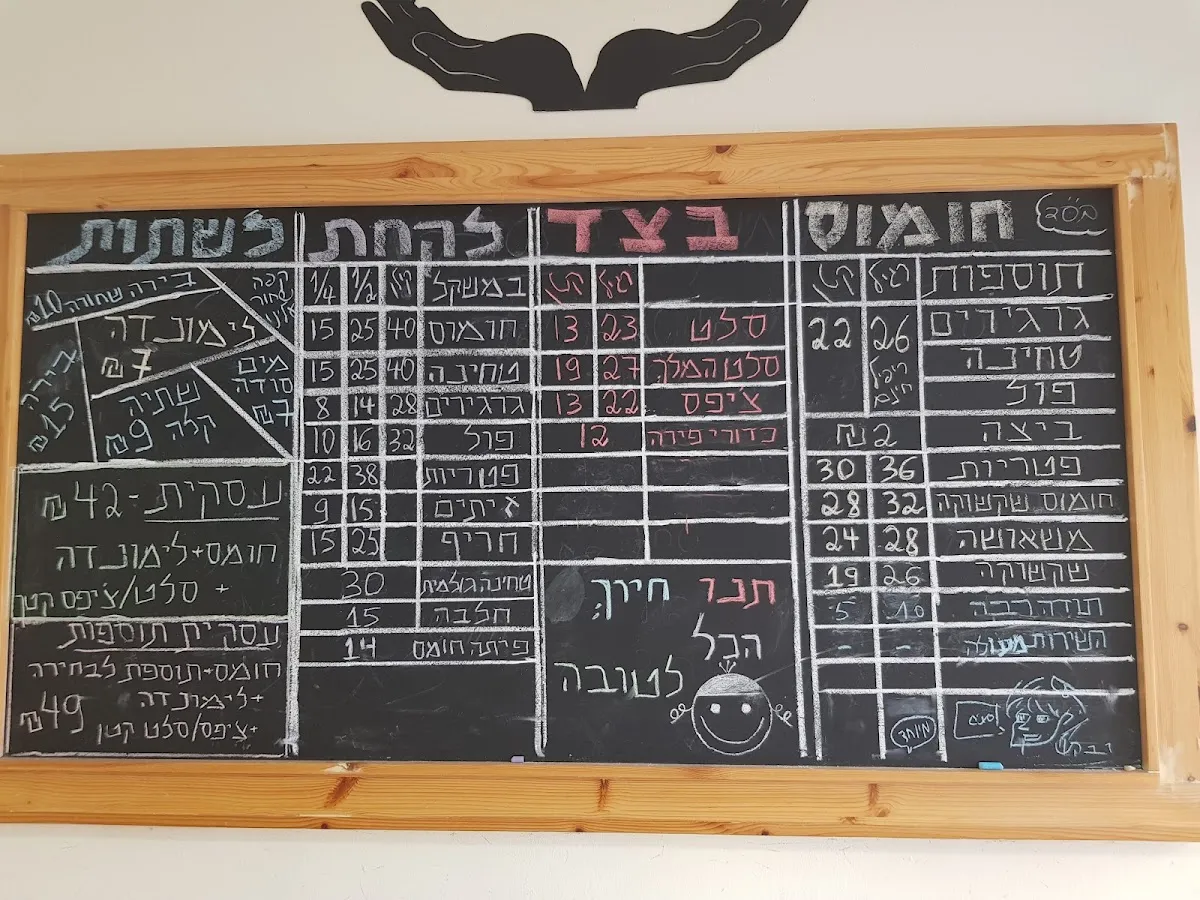 בס"ד
חומוס
תוספות גדול קטן
גרגירים 26 22
טחינה
פול
ביצה 2 ₪
פטריות 36 30
חומוס שקשוקה 32 28
משאושה 28 24
שקשוקה 26 19
תודה רבה 10 5
השירות מעולה - -
מיוחד
בצד
גדול קטן
סלט 23 13
סלט המלך 27 19
צ'יפס 22 13
כדורי פירה 12
תנו חיוך,
הכל
לטובה
לקחת
במשקל קילו 1/2 1/4
חומוס 40 25 15
טחינה 40 25 15
גרגירים 28 14 8
פול 32 16 10
פטריות 38 22
זיתים 15 9
חריף 25 15
טחינה גולמית 30
חלבה 15
פיתה חומס 14
לשתות
בירה שחורה 10 ₪
קפה
שחור
עלינו
לימונדה
7 ₪
מים
סודה
7 ₪
בירה
15 ₪
שתיה
קלה 9 ₪
עסקית - 42 ₪
חומס+לימונדה
+ סלט/צ'יפס קטן
עסקים תוספות
חומס+תוספת לבחירה
+לימונדה
+צ'יפס/סלט קטן
49 ₪